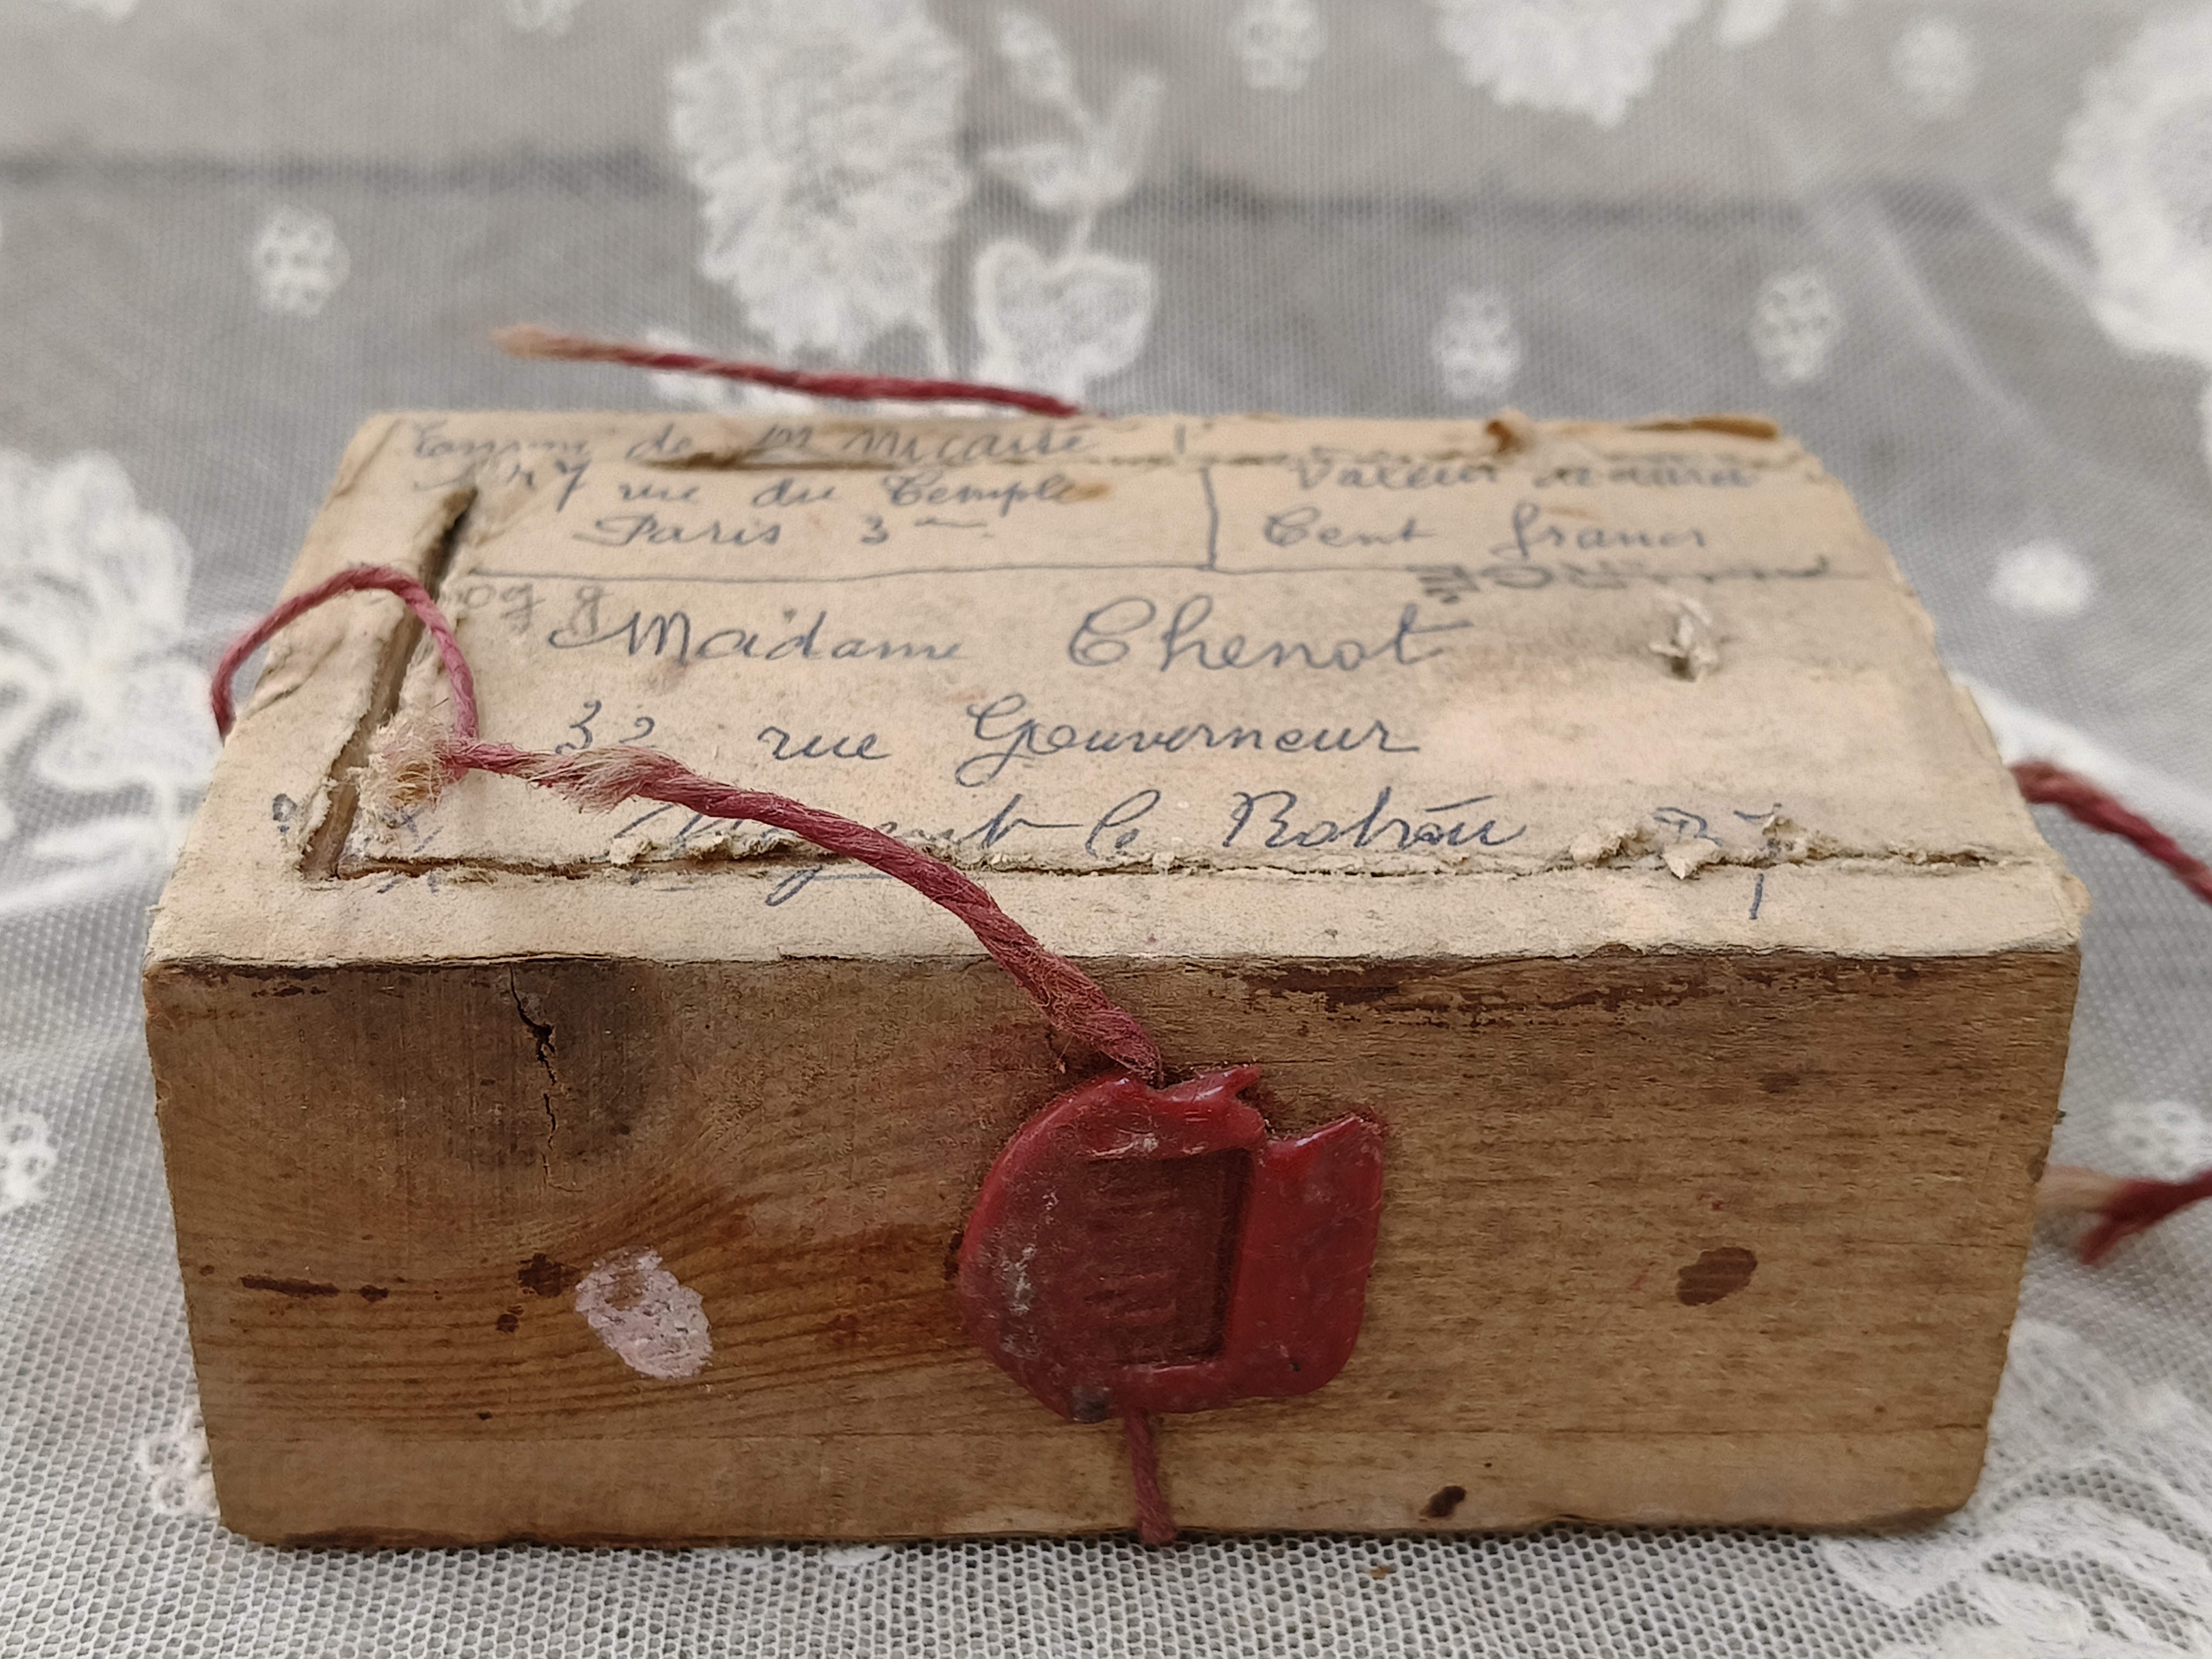 de M Micarté
147 rue du Temple
Paris 3
Valeur
Cent francs
Madame Chenot
32 rue Gouverneur
Nogent le Rotrou